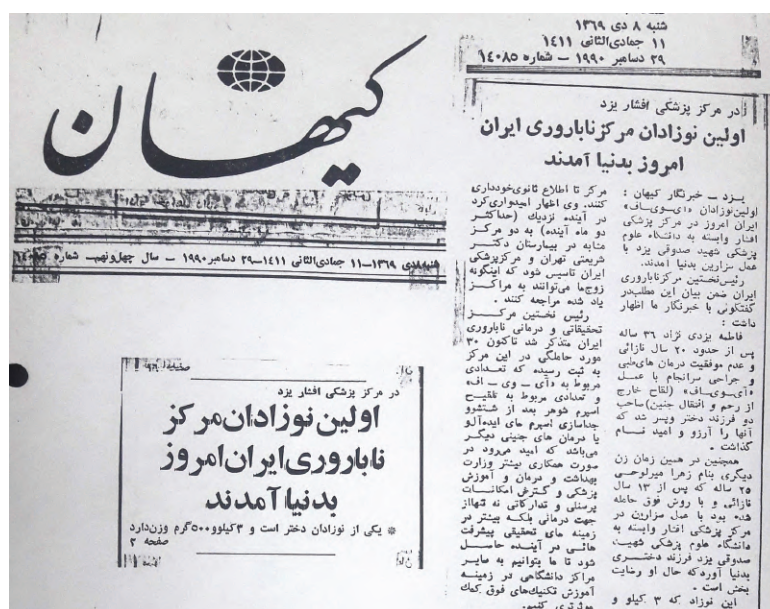 کیهان
شنبه ۸ دی ۱۳۶۹ــ۱۱ جمادی‌الثانی ۱۴۱۱ــ۲۹ دسامبر ۱۹۹۰ ــ سال چهل‌ونهم ــ شماره ۱۴۰۸۵
در مرکز پزشکی افشار یزد
اولین نوزادان مرکز
ناباروری ایران امروز
بدنیا آمدند
یکی از نوزادان دختر است و ۳کیلوو۵۰۰گرم وزن‌دارد
صفحه ۲
شنبه ۸ دی ۱۳۶۹
۱۱ جمادی‌الثانی ۱۴۱۱
۲۹ دسامبر ۱۹۹۰ ــ شماره ۱۴۰۸۵
در مرکز پزشکی افشار یزد
اولین نوزادان مرکز ناباروری ایران
امروز بدنیا آمدند
یـزد ــ خبرنگار کیهان :
اولین‌نوزادان «ای‌وی‌اف»
ایران امروز در مرکز پزشکی
افشار وابسته به دانشگاه علوم
پزشکی شهید صدوقی یزد با
عمل سزارین بدنیا آمدند.
رئیس‌نخستین مرکزناباروری
ایران ضمن بیان این مطلب‌در
گفتگوئی با خبرنگار ما اظهار
داشت :
فاطمه یزدی نژاد ۳۶ ساله
پس از حدود ۲۰ سال نازائی
و عدم موفقیت درمان های‌طبی
و جراحی سرانجام با عمـل
«آی‌وی‌اف» (لقاح خارج
از رحم و انتقال جنین)صاحب
دو فرزند دختر وپسر شد که
آنها را آرزو و امید نـــام
گذاشت .
همچنین در همین زمان زن
دیگری بنام زهرا میرلوحـی
۲۵ ساله که پس از ۱۳ سال
نازائی و با روش فوق حامله
شده بود با عمل سزارین در
مرکز پزشکی افشار وابسته به
دانشگاه علوم پزشکی شهیـد
صدوقی یزد فرزند دختـــری
بدنیا آورد‌که حال او رضایت
بخش است .
این نوزاد که ۳ کیلو و
مرکز تا اطلاع ثانوی‌خودداری
کنند. وی اظهار امیدواری‌کرد
در آینده نزدیك (حداکثـر
دو ماه آینده) به دو مرکـز
مشابه در بیمارستان دکتـر
شریعتی تهران و مرکزپزشکی
ایران تاسیس شود که اینگونه
زوج‌ها می‌توانند به مراکـز
یاد شده مراجعه کنند .
رئیس نخستین مرکـــز
تحقیقاتی و درمانی ناباروری
ایران متذکر شد تاکنون ۳۰
مورد حاملگی در این مرکز
به ثبت رسیده که تعـدادی
مربوط به «آی ــ وی ــ اف»
و تعدادی مربوط به تلقیـح
اسپرم شوهر بعد از شتشوو
جداسازی اسپرم های ایده‌آلو
یا درمان های جنینی دیگـر
می‌باشد که امید می‌رود در
صورت همکاری بیشتر وزارت
بهداشت و درمان و آموزش
پزشکی و گسترش امکانـات
پرسنلی و تدارکاتی نه تنهااز
جهت درمانی بلکـه بیشتر در
زمینه های تحقیقی پیشرفت
هائـی در آینـده حاصـل
شود تا ما بتوانیم به سایـر
مراکز دانشگاهی در زمینـه
آموزش تکنیك‌های فوق کمك
موثرتری کنیم.